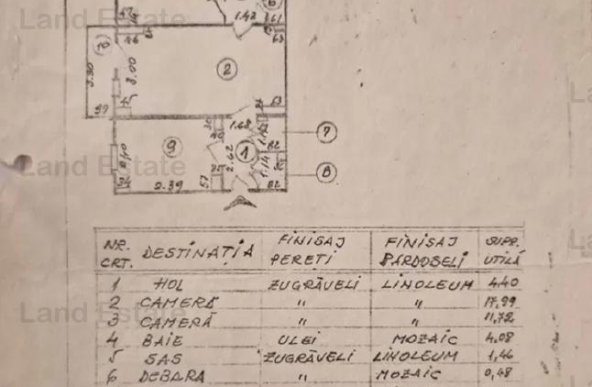 Land Estate
47
1.42
3.61
63
46
10
3.30
3.00
2
45
97
63
1.68
7
9
1
2.62
1.14
82
8
2.39
57
82
Land Estate
NR. CRT. DESTINAȚIA FINISAJ PERETI FINISAJ PARDOSELI SUPR. UTILĂ
1 HOL ZUGRĂVELI LINOLEUM 4.40
2 CAMERĂ " " 17,99
3 CAMERĂ " " 11,72
Land Estate
4 BAIE ULEI MOZAIC 4.08
5 SAS ZUGRĂVELI LINOLEUM 1,46
6 DEBARA " MOZAIC 0,48